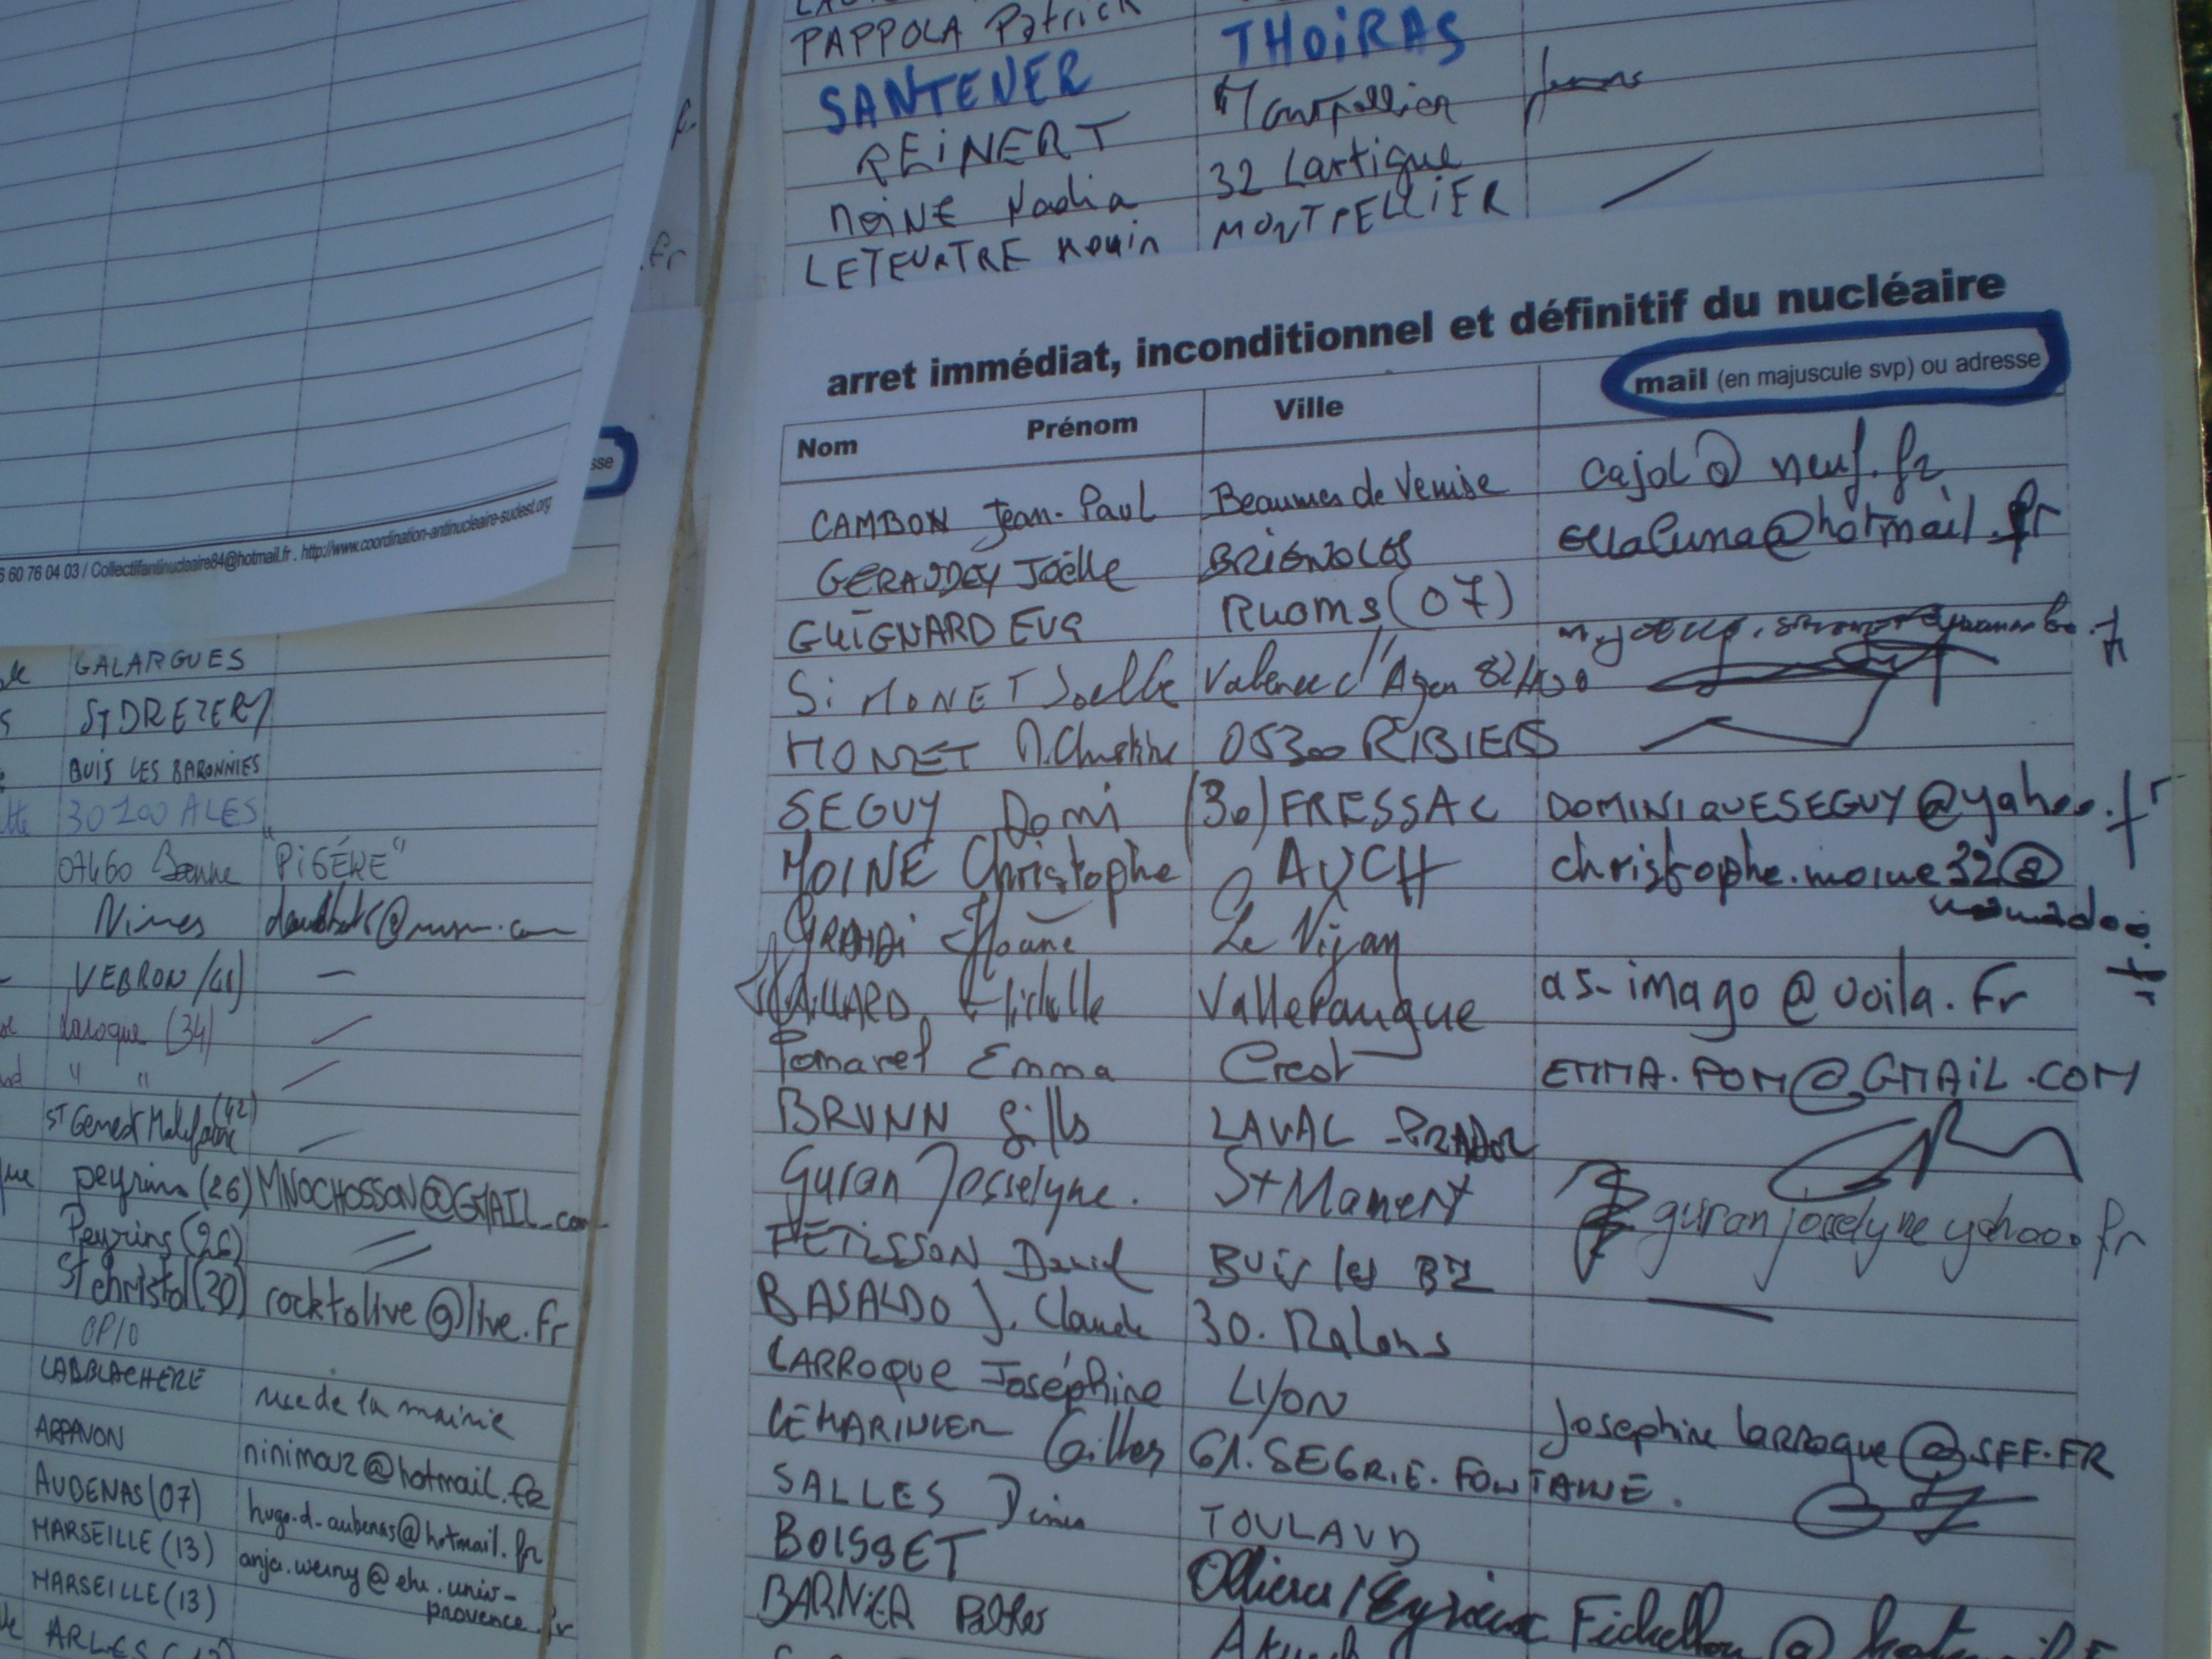 PAPPOLA Patrick
SANTENER THOIRAS
REINERT Montpellier
MOINE Nadia 32 Lartigue
LETEURTRE MONTPELLIER
arret immédiat, inconditionnel et définitif du nucléaire
Nom Prénom Ville mail (en majuscule svp) ou adresse
CAMBON Jean-Paul Beaumes de Venise cajol@neuf.fr
GERAUDEY Joëlle BRIGNOLES ellaluna@hotmail.fr
GUIGNARD EVA Ruoms (07)
SIMONET Joelle Valence d'Agen
MONET M.Christine 05300 RIBIERS
SEGUY Domi (30) FRESSAC DOMINIQUESEGUY@yahoo.fr
MOINE Christophe AUCH christophe.moine32@
Le Vigan
Valleraugue as-imago@voila.fr
Pomarel Emma Crest EMMA.POM@GMAIL.COM
BRUNN Gills LAVAL-PRADEL
Guran Josselyne. St Mamert guranjocelyne yahoo.fr
PETISSON David Buis les BZ
BASALDO J. Claude 30.
LARROQUE Joséphine LYON Josephine larroque@SFF.FR
LEMARINIER Gilles 61.SEGRIE.FONTAINE.
SALLES Denis TOULAUD
BOISSET
BARNIER
sse
6 60 76 04 03 / Collectifantinucleaire84@hotmail.fr . http://www.coordination-antinucleaire-sudest.org
GALARGUES
ST DREZERY
BUIS LES BARONNIES
30100 ALES
07460 "PIGÉRE"
Nimes
VEBRON —
Laroque (34)
" "
St Genest Malifaux (42)
peyrins (26) MNOCHOSSON@GMAIL.com
Peyrins (26)
St christol (30) rocktolive@live.fr
OPIO
LABBLACHERE rue de la mairie
ARPAVON ninimouz@hotmail.fr
AUBENAS (07) hugo.d-aubenas@hotmail.fr
MARSEILLE (13)
MARSEILLE (13) provence.fr
ARLES